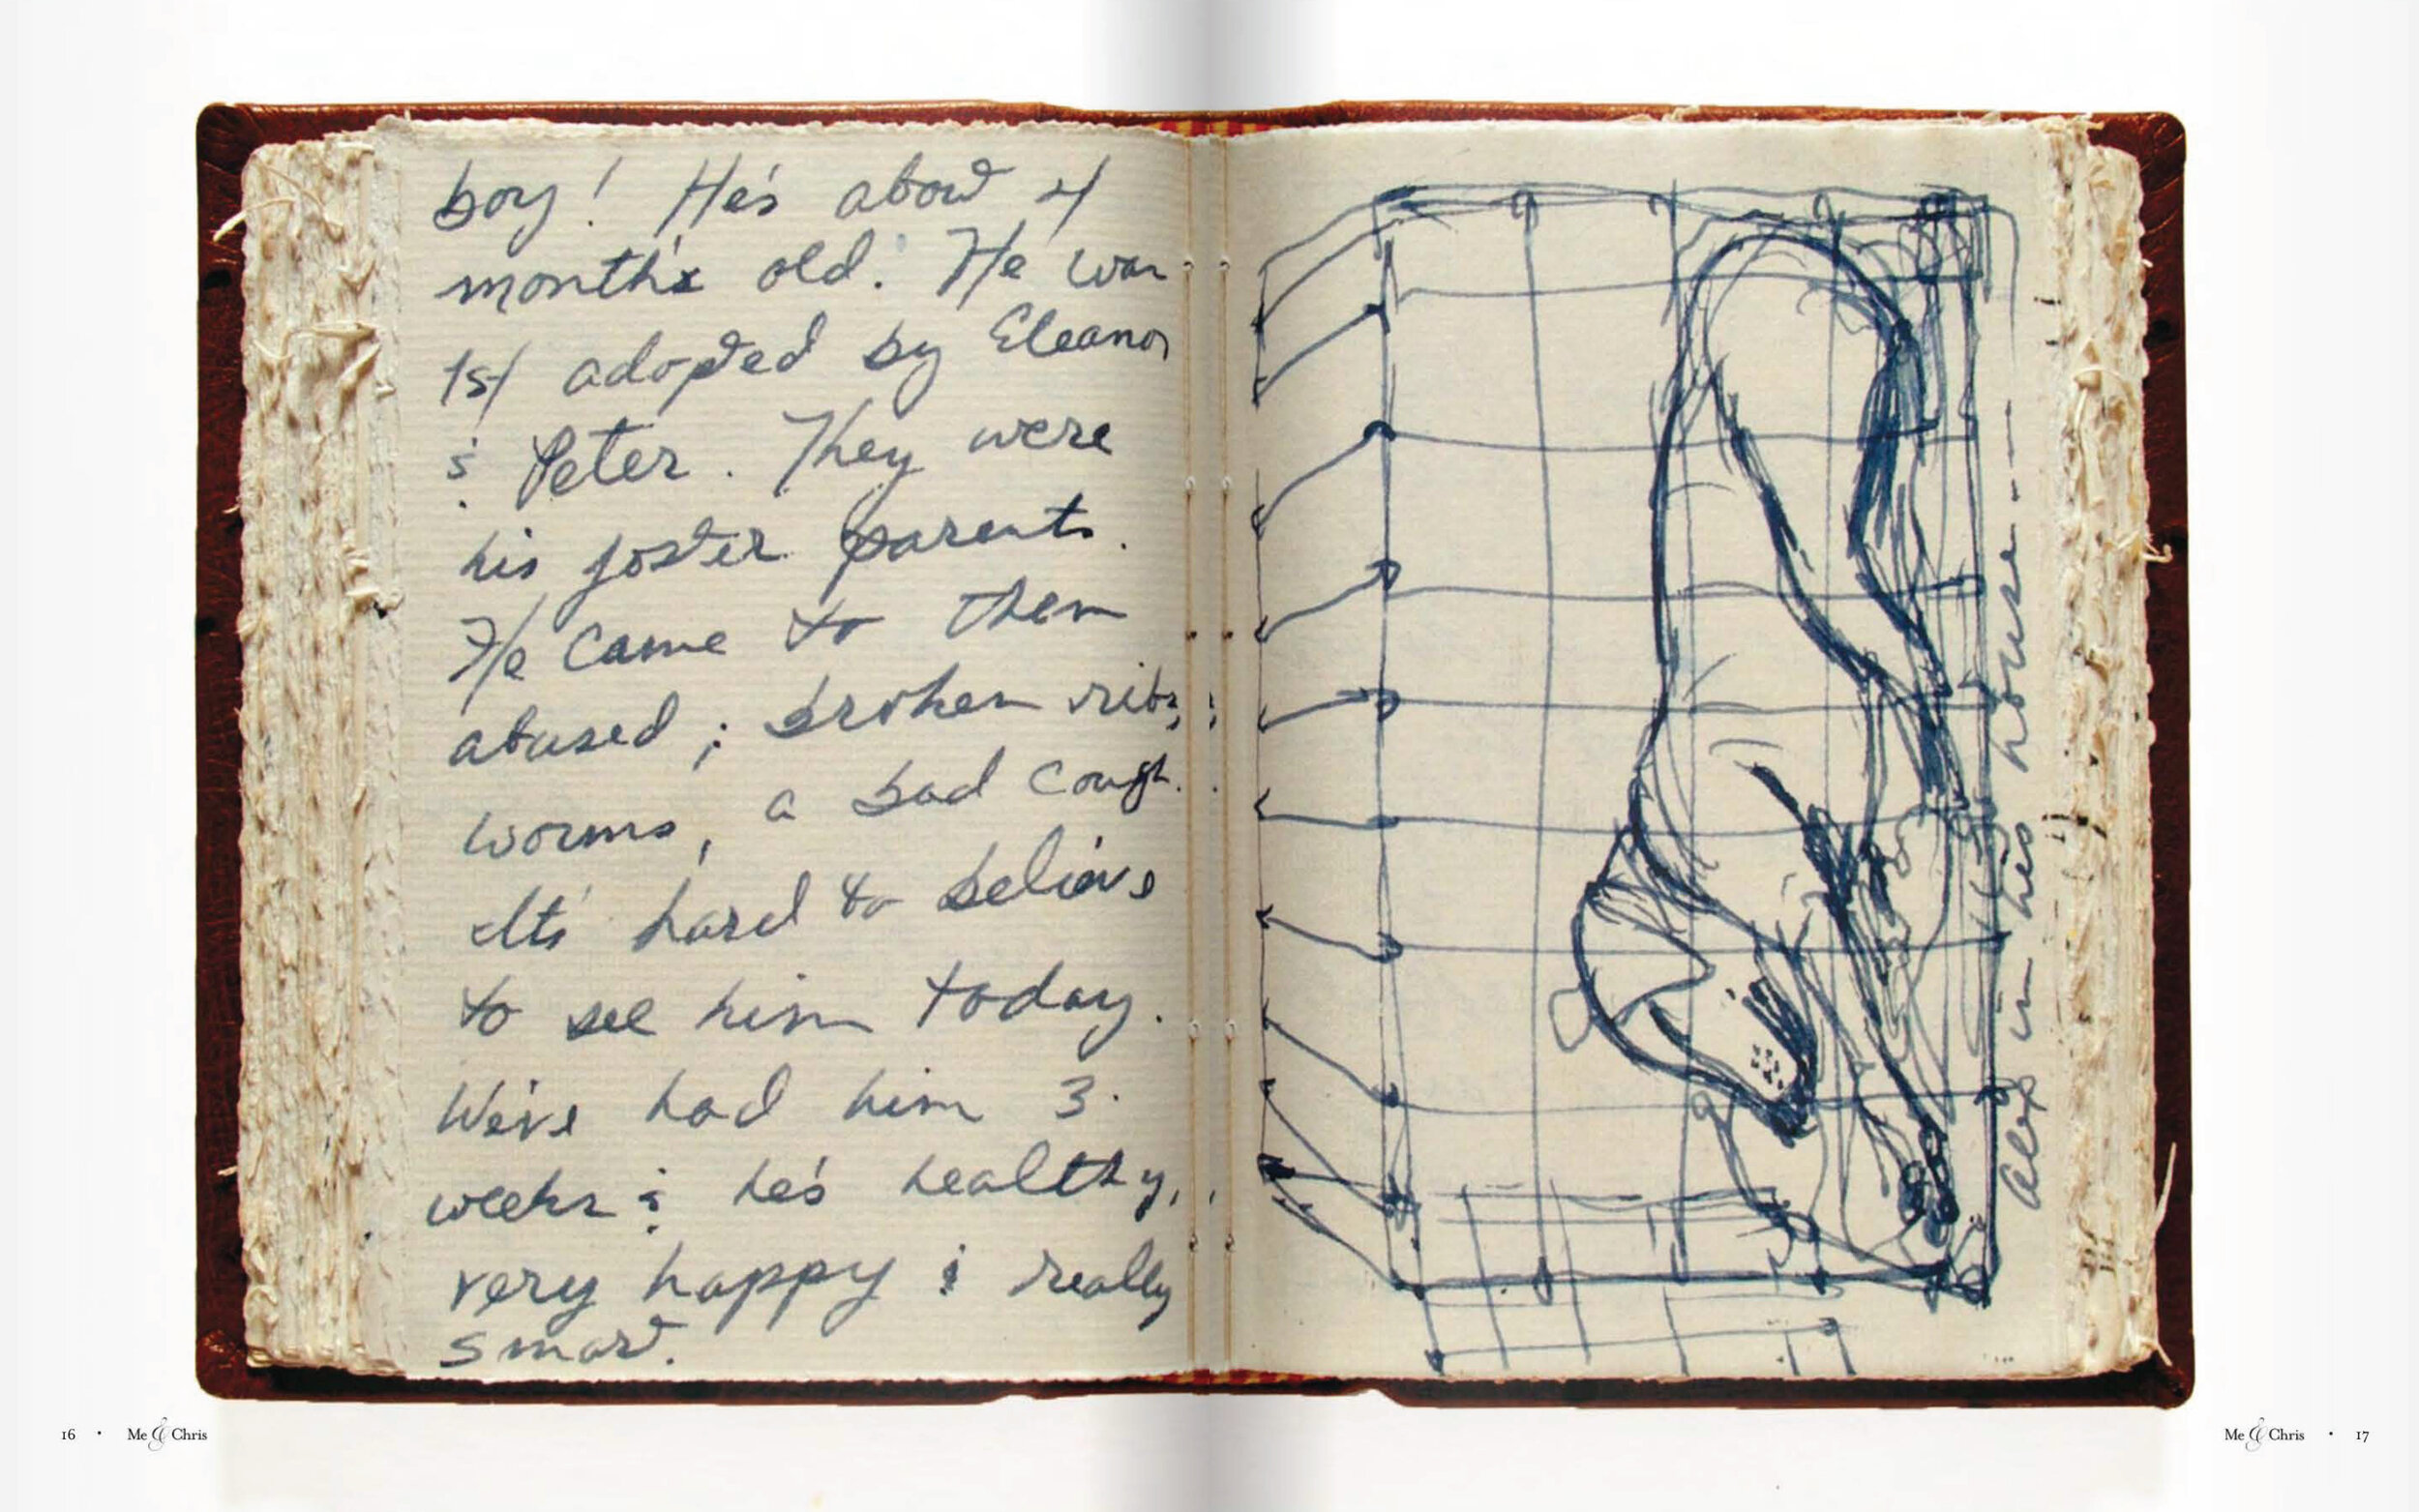 boy! He's about 4
months old. He was
1st adopted by Eleanor
& Peter. They were
his foster parents.
He came to them
abused; broken ribs,
worms, a bad cough.
It's hard to believe
to see him today.
We've had him 3
weeks & he's healthy,
very happy & really
smart.
Alex in his house----
16 · Me & Chris
Me & Chris · 17